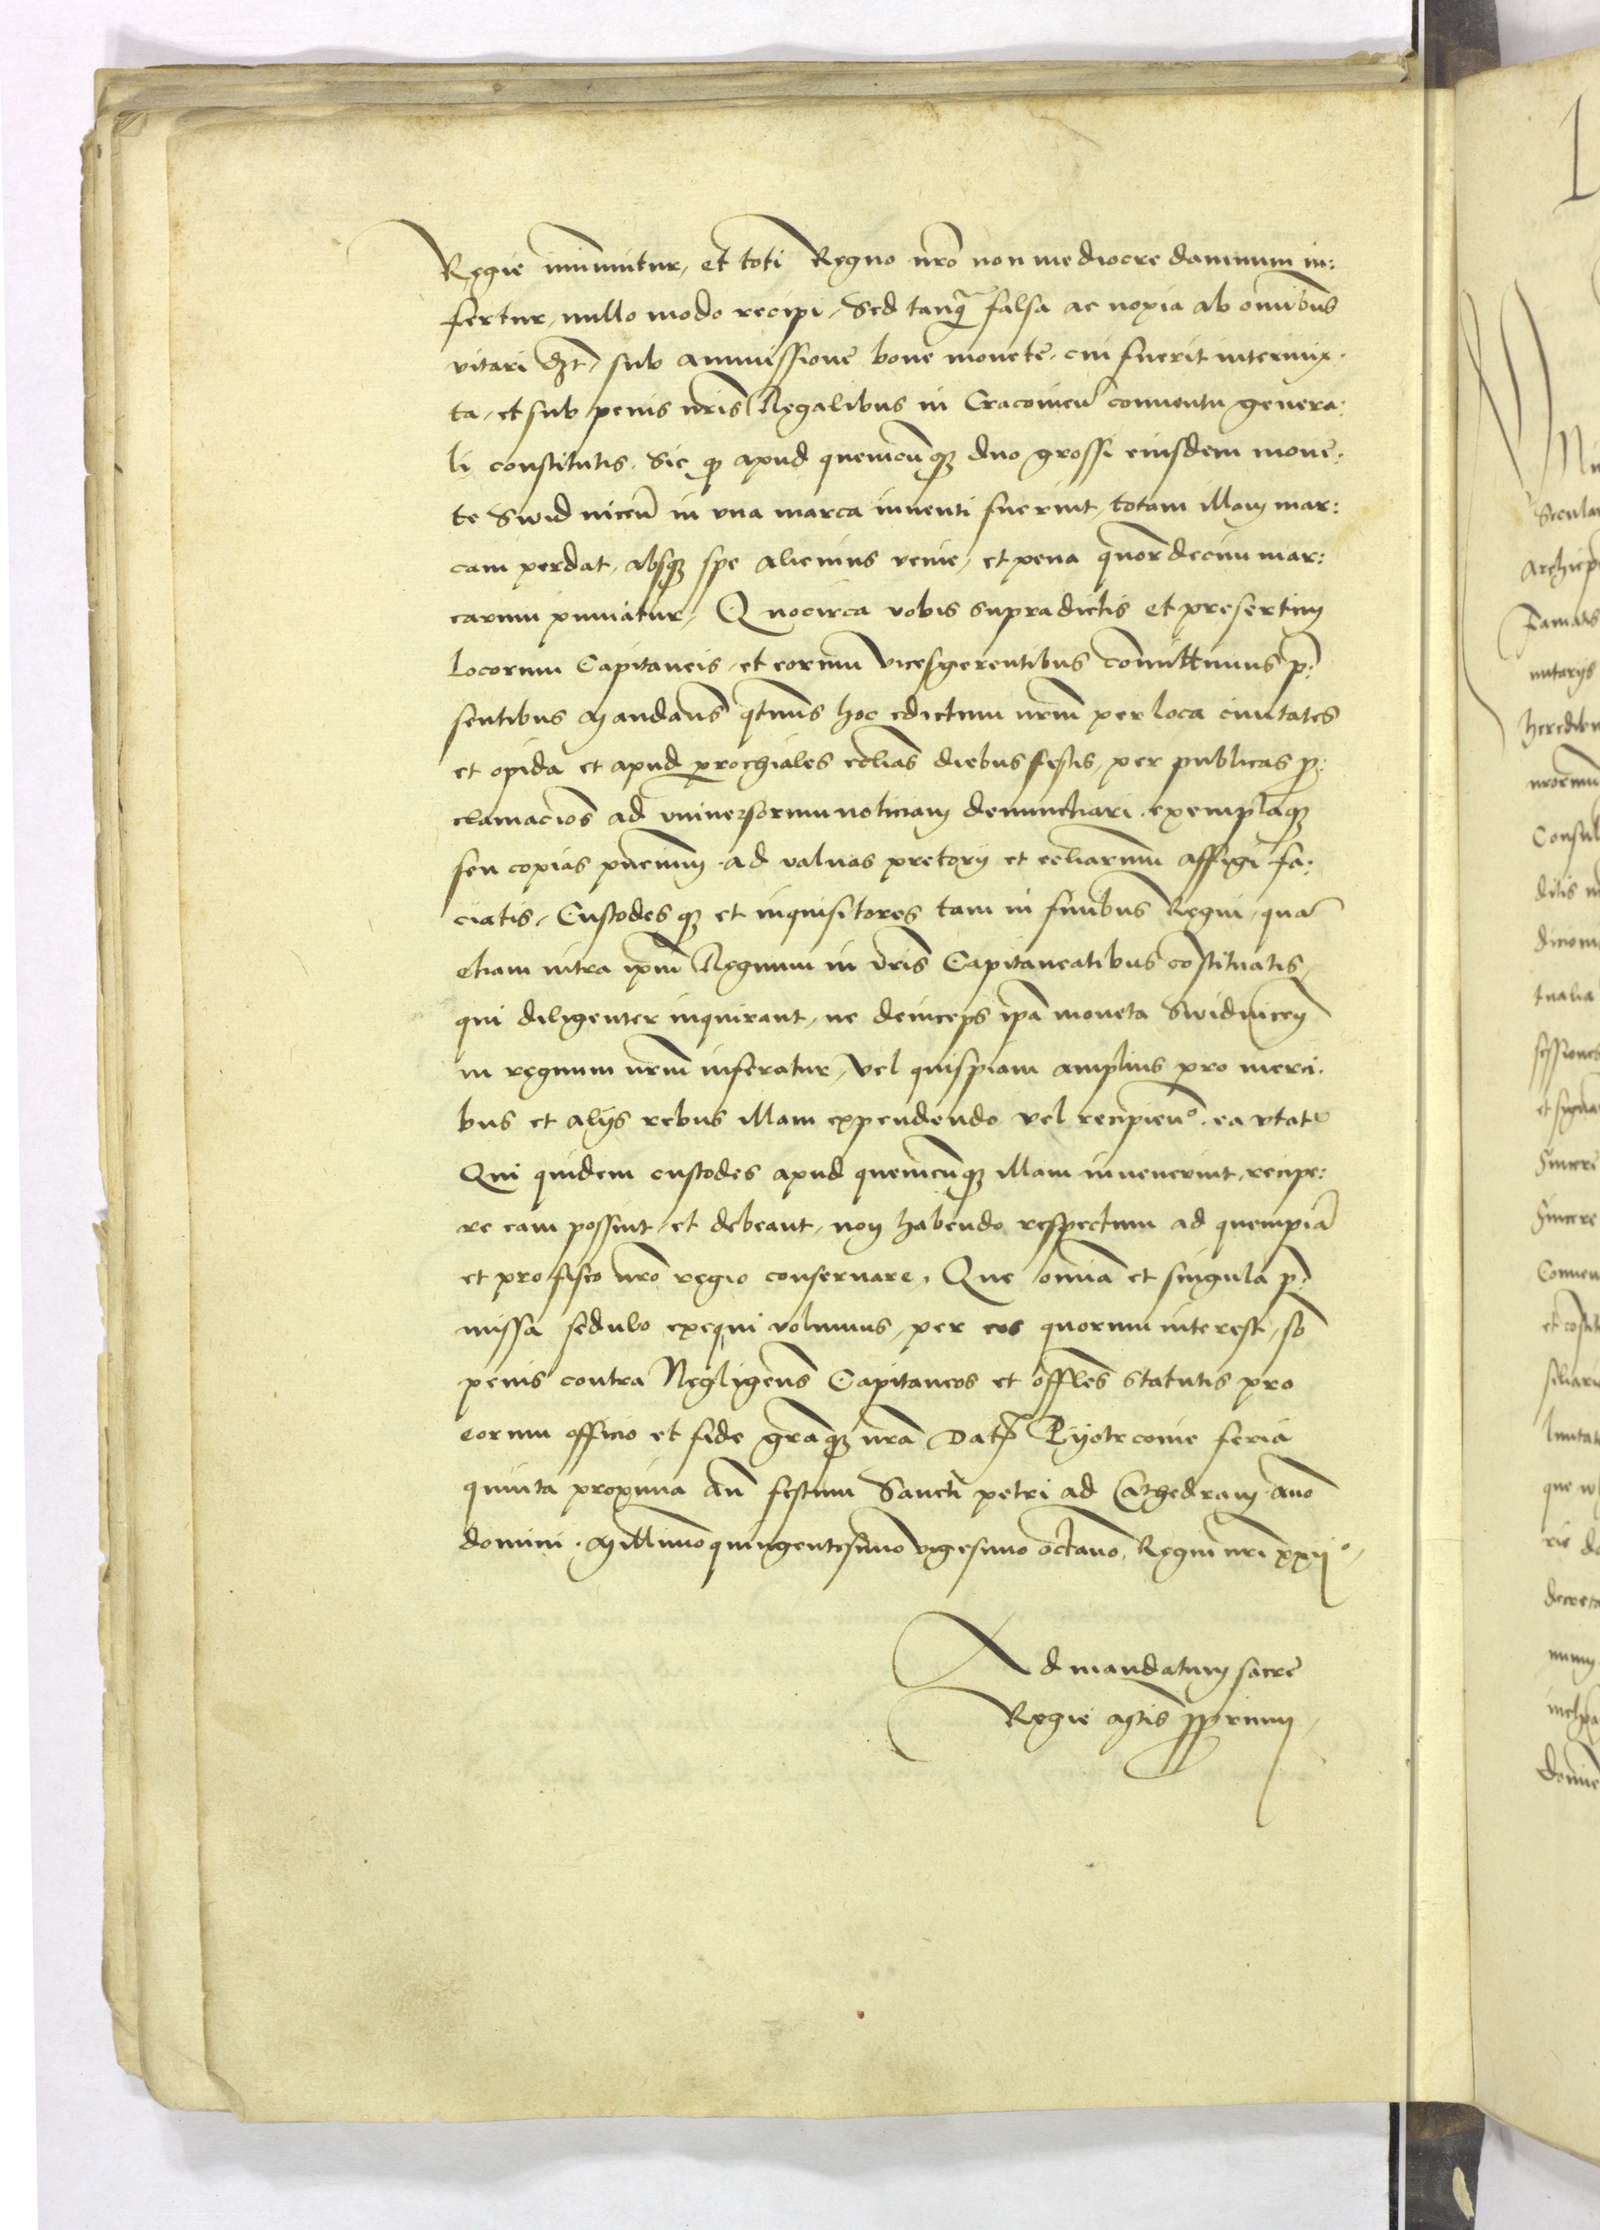 Regie iminuitur, et toti Regno nro non mediocre damnum in:
fertur, nullo modo recipi, Sed tanq̃ falsa ac noxia ab omibus
vitari sub ammissione bone monete, cui fuerit intermix.
ta, et sub penis nris Regalibus in Cracovieñ conventu genera:
li constitutis. Sic q apud quemcunq duo grossi eiusdem mone:
te Swidniceñ in una marca inventi fuerint, totam illam mar:
cam perdat, absq spe alicuius venie, et pena quordecim mar:
carum puniatur, Quocirca vobis supradictis et presertim
locorum Capitaneis, et eorum vicesgerentibus comittimus p̃:
sentibus Mandañs qtnus hoc edictum nrm per loca civitates
et opida et apud parochiales ecclias diebus festis, per publicas p:
clamacios ad universorum noticiam denunctiari, exemplaq
seu copias pncium, ad valvas pretorij et eccliarum affigi fa:
ciatis, Custodesq et inquisitores tam in finibus Regni, qua
etiam intra ipm Regnum in vris Capitaneatibus costituatis,
qui diligenter inquirant, ne deinceps ipa moneta Swidnicen
in regnum nrm inferatur, vel quispiam amplius pro merci.
bus et alijs rebus illam expendendo vel recipien°. ea utat
Qui quidem custodes apud quemcunq illam invenerint, recipe:
re eam possint, et debeant, non habendo respectum ad quempiã
et pro fisco nro regio conservare, Que omia et singula p:
missa sedulo exequi volumus, per eos quorum interest, sb
penis contra Negligens Capitaneos et offles statutis pro
eorum officio et fide graq nra Dat Pyotrcovie feria
quinta proxima an festum Sancti petri ad Cathedram, ano
domini. Millimo quingentesimo vigesimo octavo, Regni nri xxij°,
Ad mandatum sacre
Regie Mtis pprium